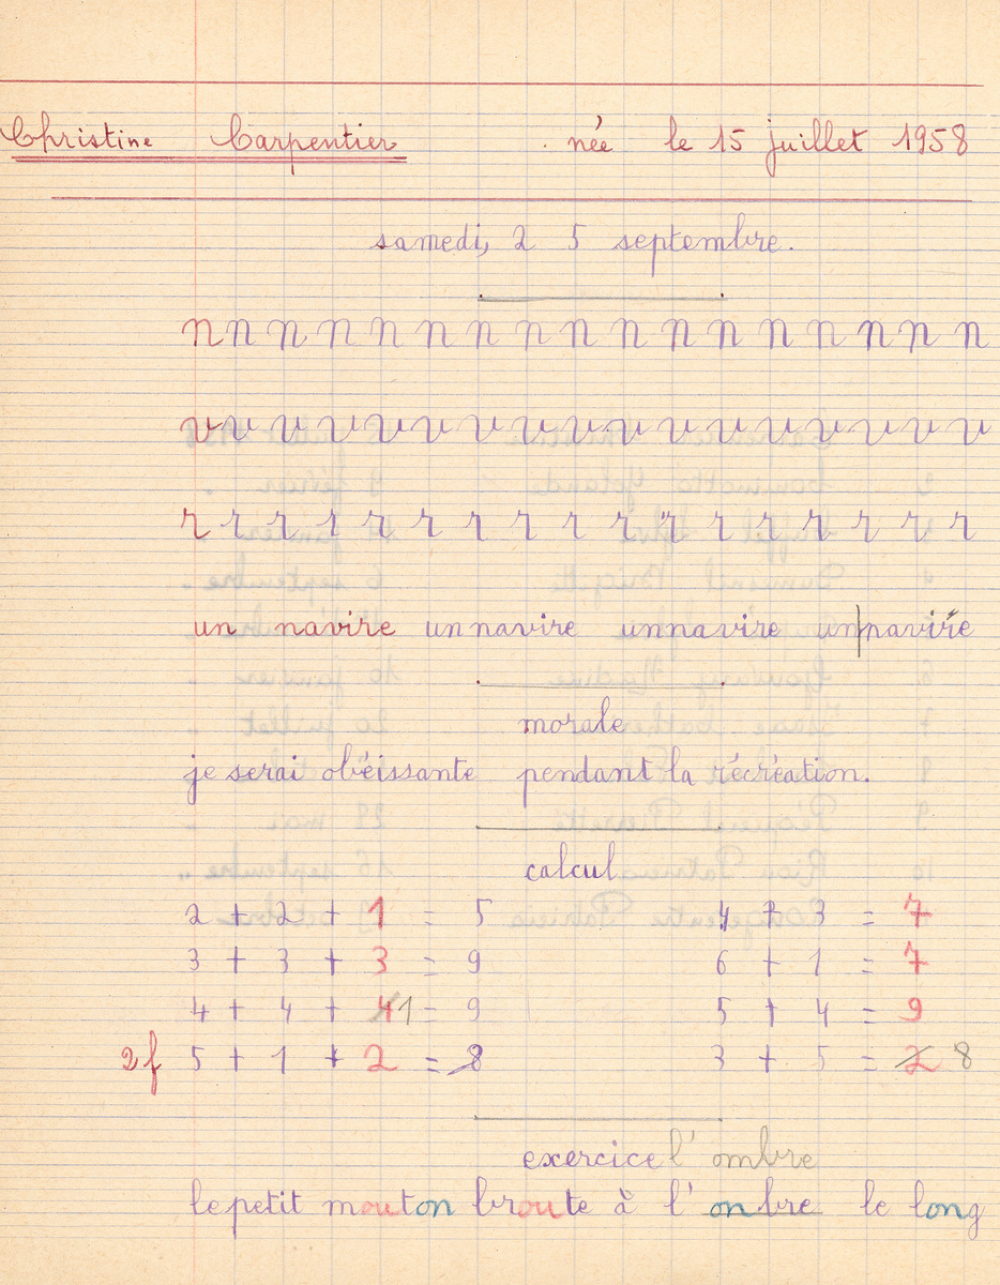 Christine Carpentier née le 15 juillet 1958
samedi, 25 septembre.
n n n n n n n n n n n n n n n n n
v v v v v v v v v v v v v v v v v
r r r r r r r r r r r r r r r r r
un navire un navire un navire un|navire
morale
je serai obéissante pendant la récréation.
calcul
2 + 2 + 1 = 5 4 + 3 = 7
3 + 3 + 3 = 9 6 + 1 = 7
4 + 4 + 4 1 = 9 5 + 4 = 9
2f 5 + 1 + 2 = 8 3 + 5 = 2 8
exercice l'ombre
le petit mouton broute à l'onbre le long